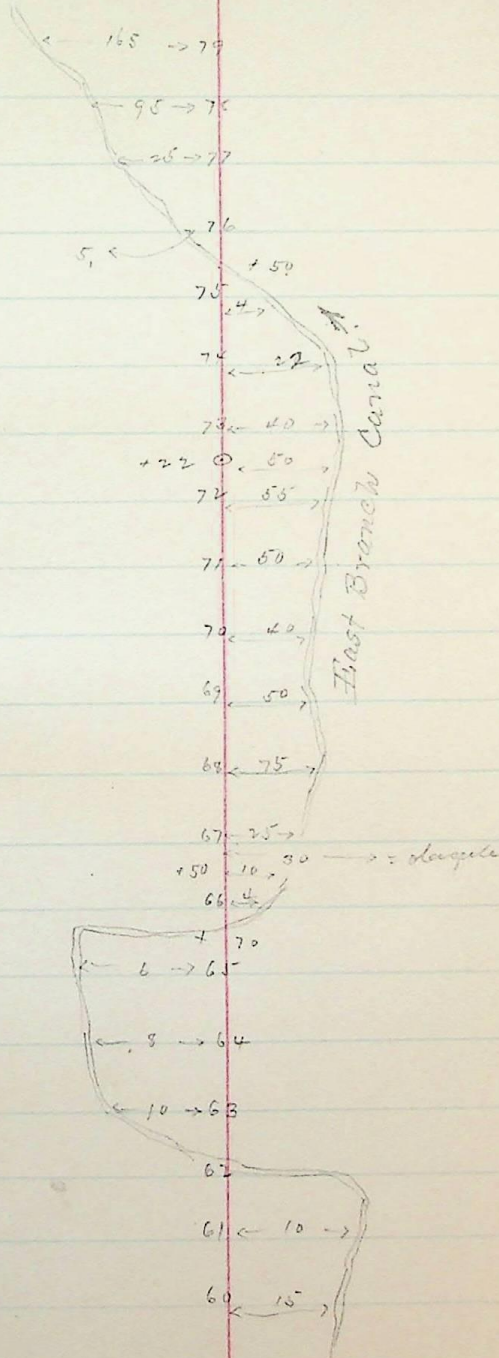 165 79
95 78
25 77
76
5,
+ 50
75
4
74 22
73 40
+22 50
72 55
71 50
70 40
69 50
68 75
67 25
30 =
+50 10
66 4
+ 70
6 65
8 64
10 63
62
61 10
60 15
East Branch Canal